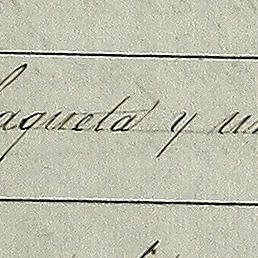 aqueta y un